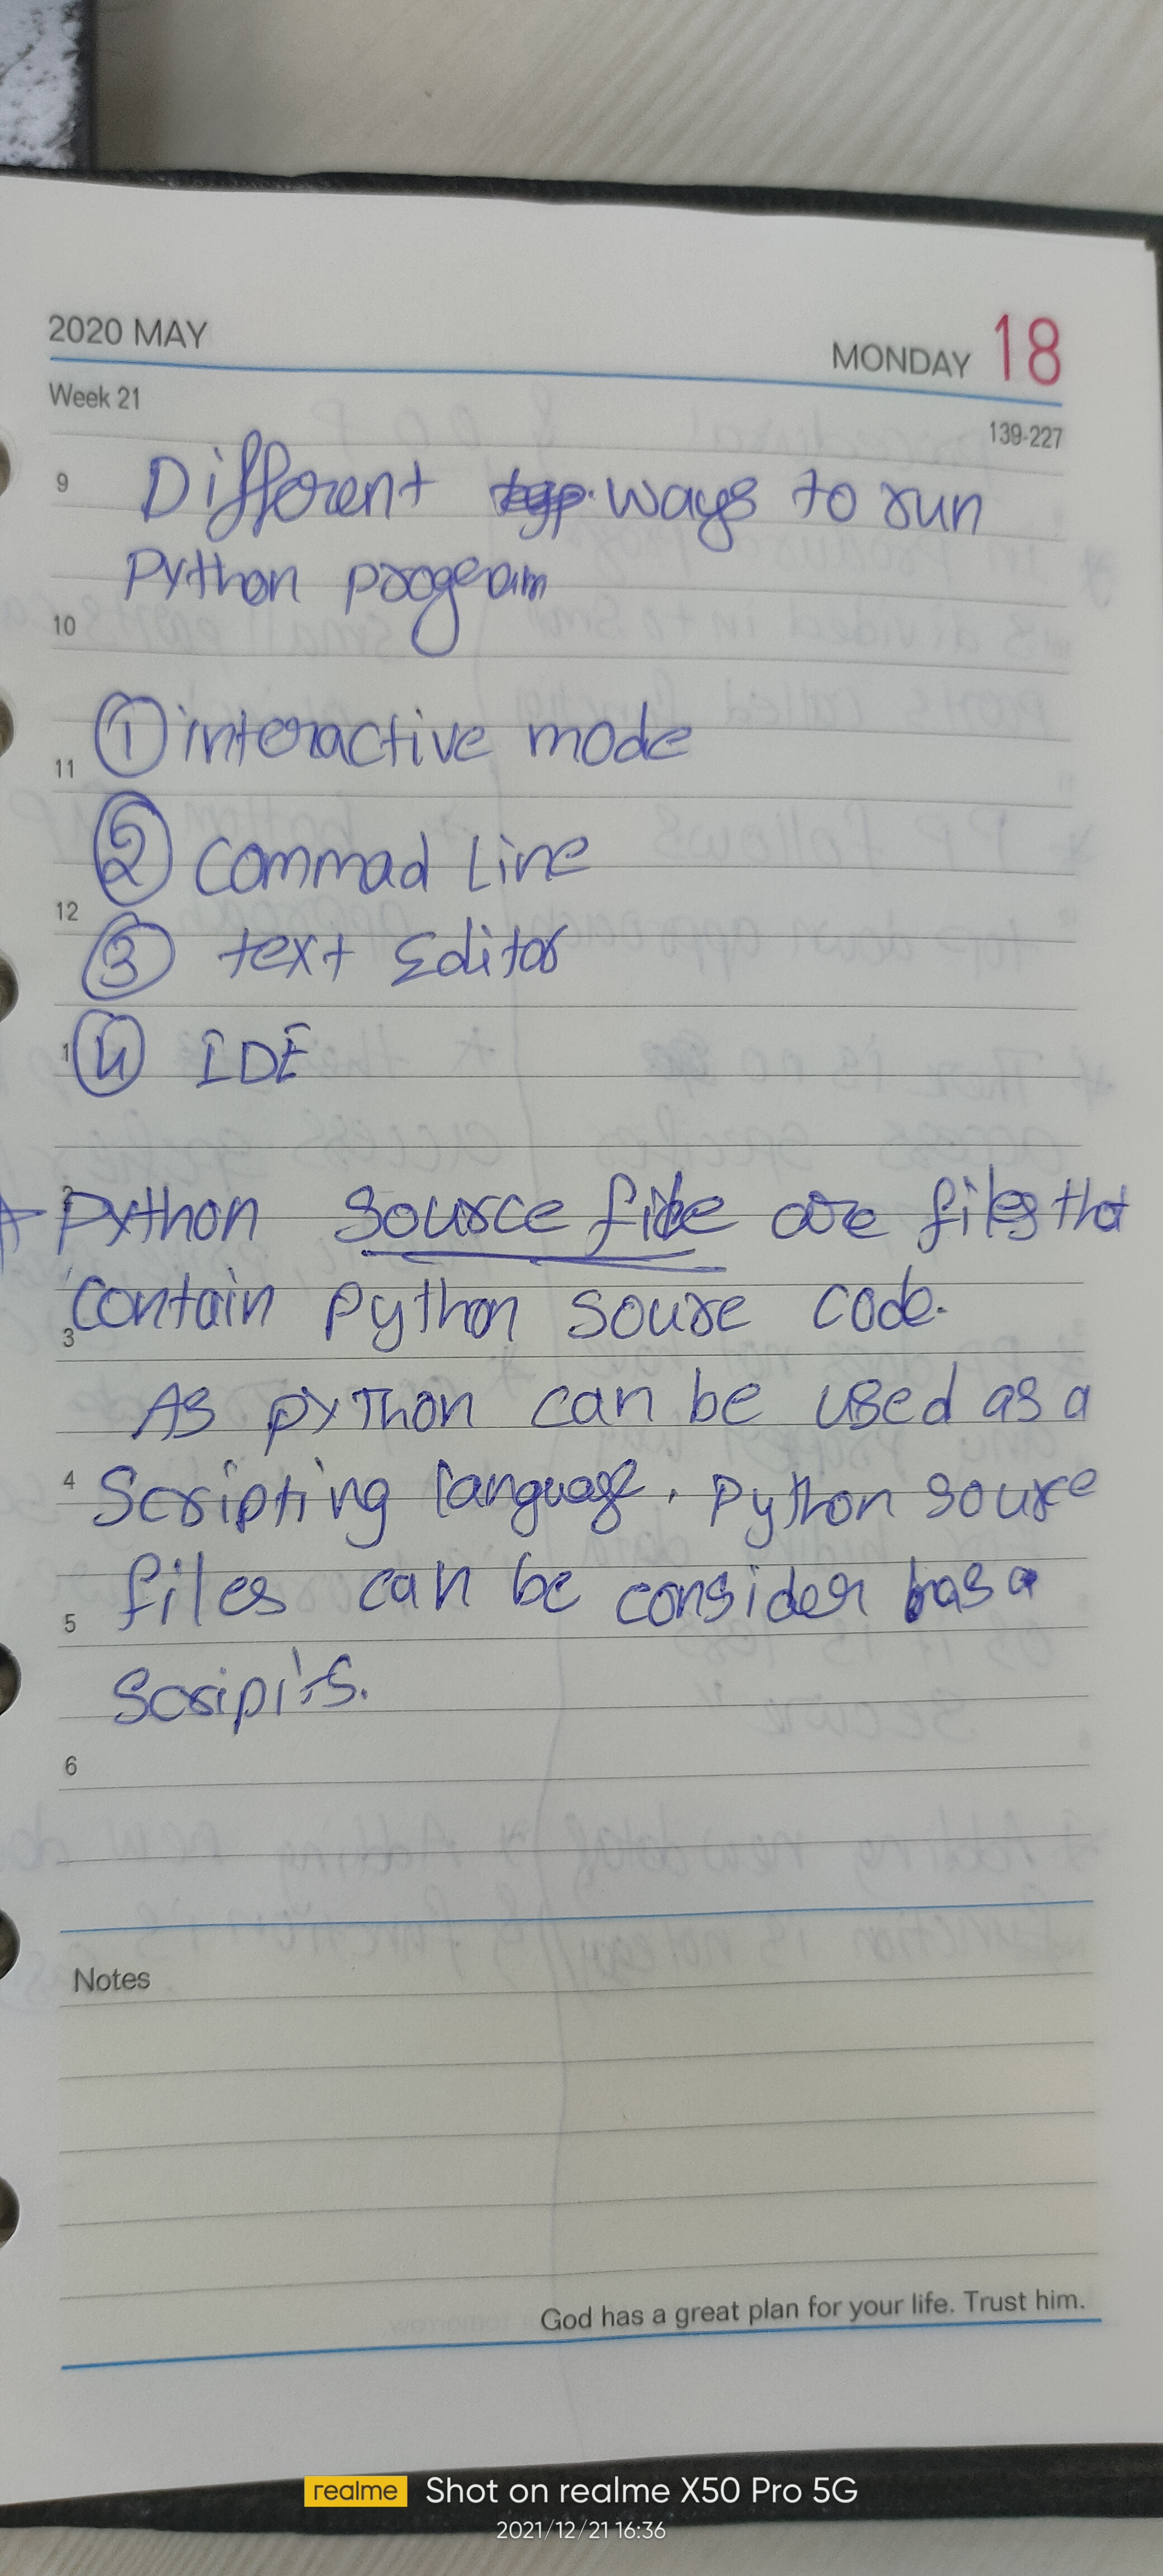 2020 MAY
MONDAY 18
Week 21
139-227
9
Different ways to run
Python program
10
① interactive mode
11
② Commad Line
12
③ text Editor
1
④ IDE
2
Python source file are files that
contain Python sourse code.
3
As pyThon can be used as a
4
Scripting language. Python sourse
files can be consider as a
5
Scripits.
6
Notes
God has a great plan for your life. Trust him.
realme Shot on realme X50 Pro 5G
2021/12/21 16:36